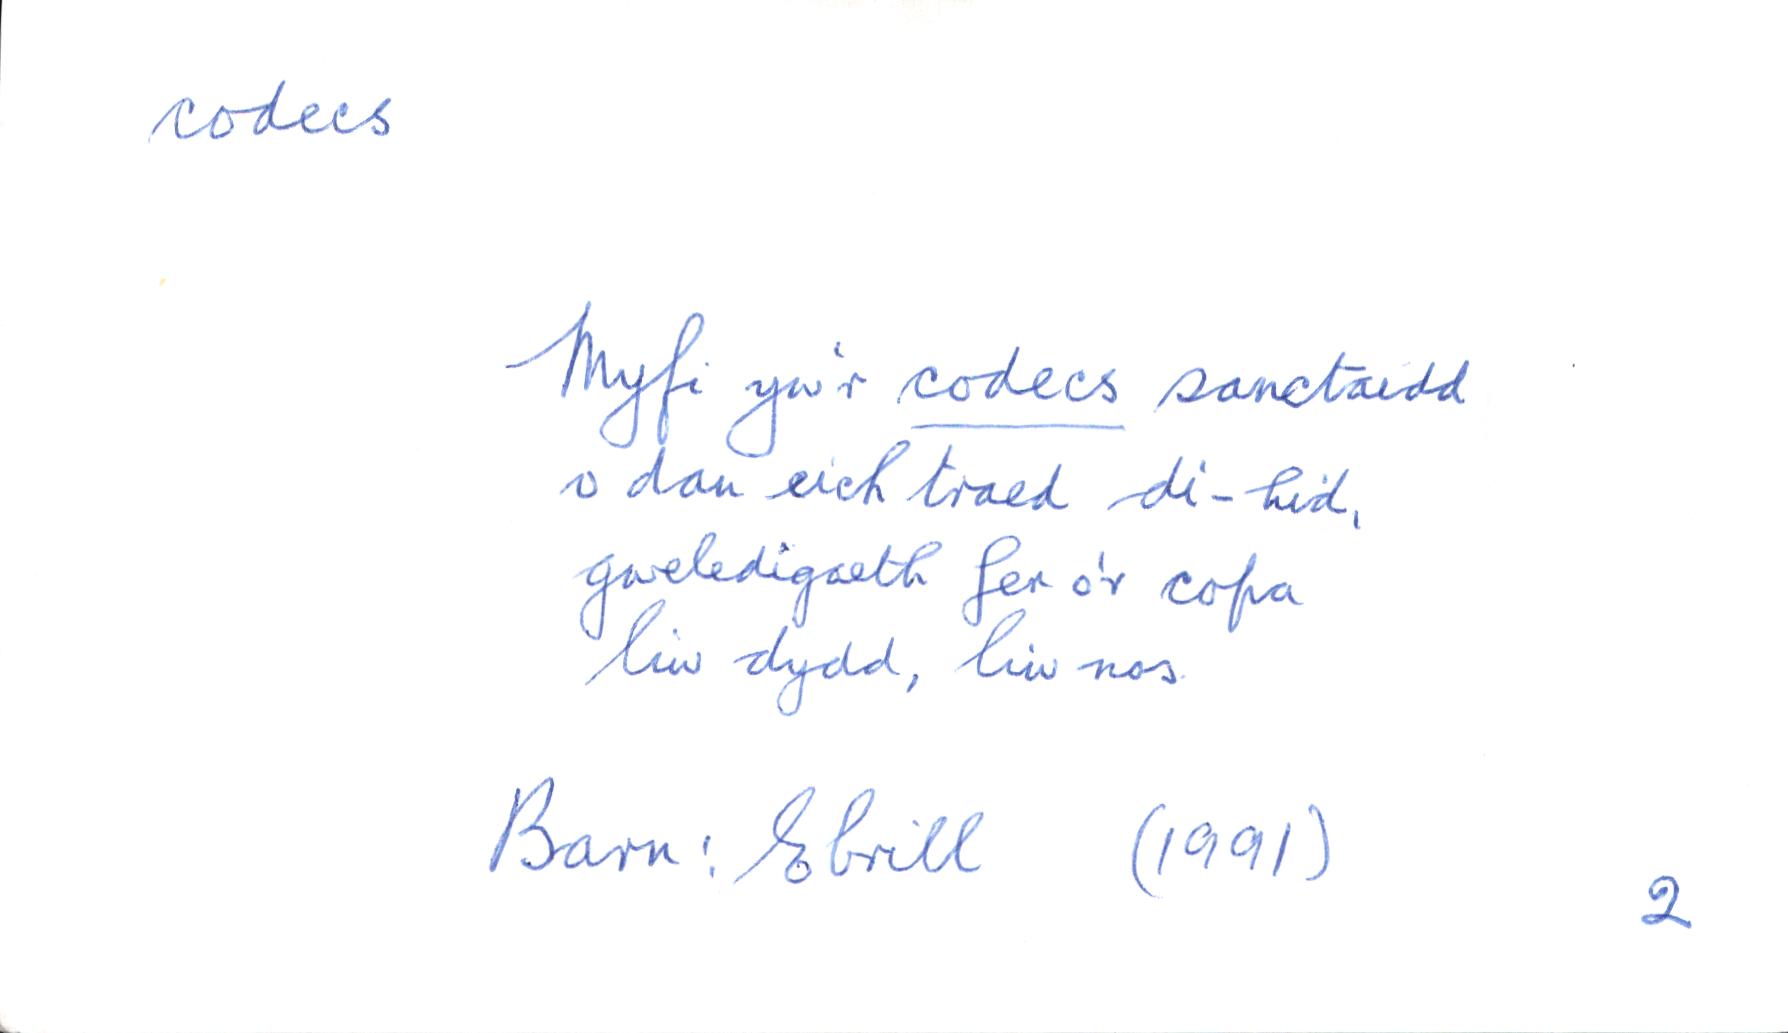 codecs
Myfi yw'r codecs sanctaidd
o dan eich traed di-hid,
gweledigaeth fer o'r copa
liw dydd, liw nos.
Barn: Ebrill (1991)
2